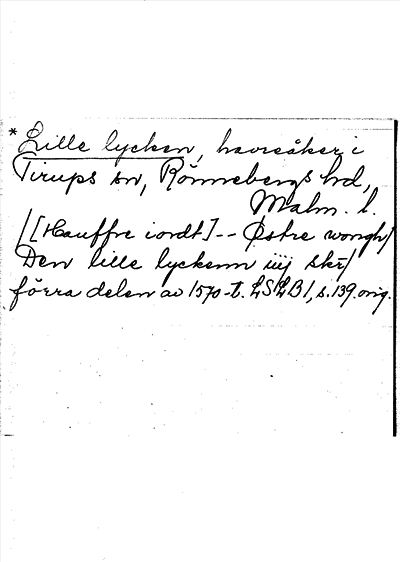 * Lille lycken, havreåker i
Tirups sn, Rönnebergs hd,
Malm. l.
/[Hauffre iordt] -- Østre wongh/
Den lille lyckenn iiij skr/
förra delen av 1570-t. LSLB 1, s. 139. orig.